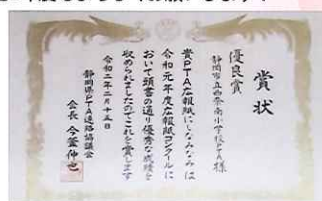 賞状
優良賞
静岡市立西奈南小学校PTA様
貴PTA広報紙にしなみなみは
令和元年度広報紙コンクールに
おいて頭書の通り優秀な成績を
収められましたのでこれを賞します
令和二年二月十五日
静岡県PTA連絡協議会
会長 今釜伸也